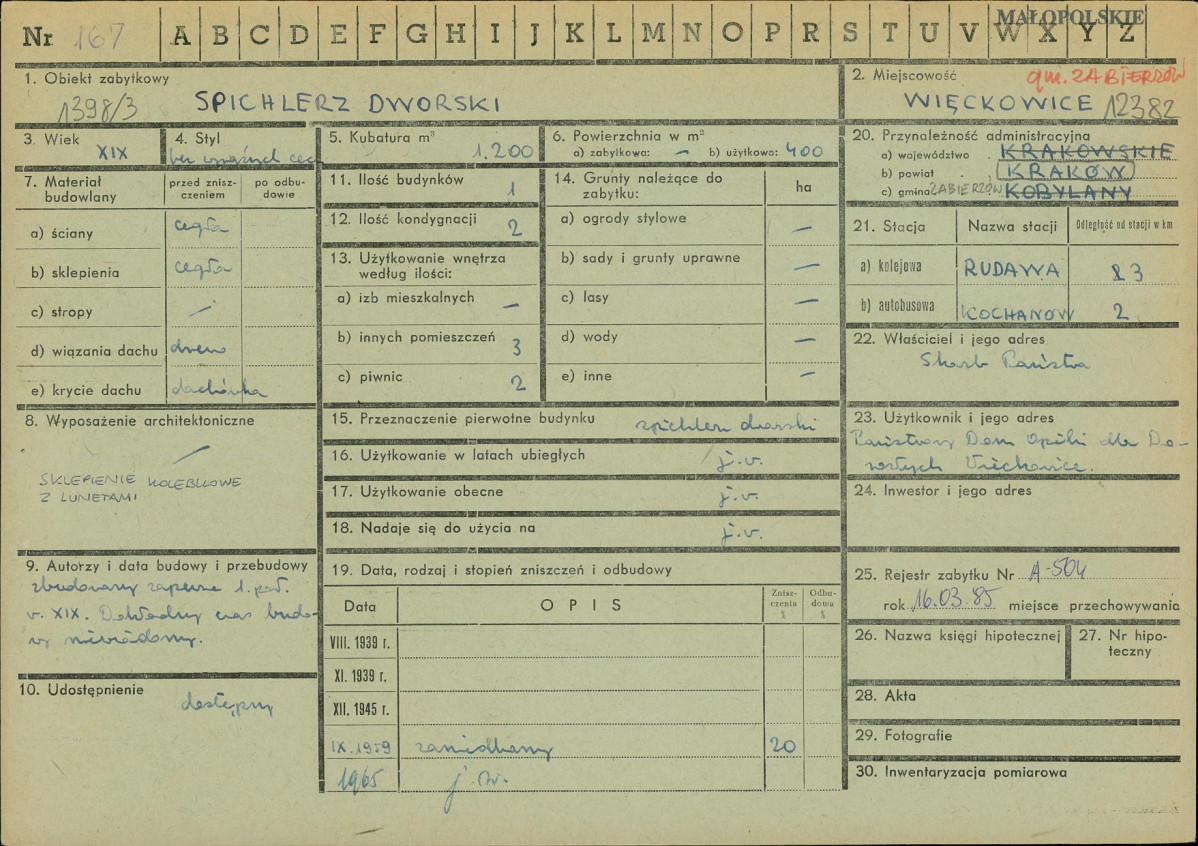 MAŁOPOLSKIE
Nr 167 A B C D E F G H I J K L M N O P R S T U V W X Y Z
1. Obiekt zabytkowy
1398/3 SPICHLERZ DWORSKI
2. Miejscowość gm. ZABIERZÓW
WIĘCKOWICE 12382
3. Wiek
XIX
4. Styl
bez wyraźnych cech
5. Kubatura m³
1.200
6. Powierzchnia w m²
a) zabytkowa: — b) użytkowa: 400
7. Materiał budowlany
przed znisz-
czeniem
po odbu-
dowie
a) ściany cegła
b) sklepienia cegła
c) stropy —
d) wiązania dachu drewno
e) krycie dachu dachówka
8. Wyposażenie architektoniczne
—
SKLEPIENIE KOLEBKOWE
Z LUNETAMI
9. Autorzy i data budowy i przebudowy
zbudowany zapewne 1. poł.
w. XIX. Dokładny czas budo-
wy niewiadomy.
10. Udostępnienie
dostępny
11. Ilość budynków 1
12. Ilość kondygnacji 2
13. Użytkowanie wnętrza
według ilości:
a) izb mieszkalnych —
b) innych pomieszczeń 3
c) piwnic 2
14. Grunty należące do
zabytku:
ha
a) ogrody stylowe —
b) sady i grunty uprawne —
c) lasy —
d) wody —
e) inne —
15. Przeznaczenie pierwotne budynku spichlerz dworski
16. Użytkowanie w latach ubiegłych j.w.
17. Użytkowanie obecne j.w.
18. Nadaje się do użycia na j.w.
19. Data, rodzaj i stopień zniszczeń i odbudowy
Data OPIS Znisz-
czenia
%
Odbu-
dowa
%
VIII. 1939 r.
XI. 1939 r.
XII. 1945 r.
IX.1959 zaniedbany 20
1965 j.w.
20. Przynależność administracyjna
a) województwo KRAKOWSKIE
b) powiat KRAKÓW
c) gmina ZABIERZÓW KOBYLANY
21. Stacja Nazwa stacji Odległość od stacji w km
a) kolejowa RUDAWA 3
b) autobusowa KOCHANÓW 2
22. Właściciel i jego adres
Skarb Państwa
23. Użytkownik i jego adres
Państwowy Dom Opieki dla Do-
rosłych Więckowice.
24. Inwestor i jego adres
25. Rejestr zabytku Nr A-504
rok 16.03.85 miejsce przechowywania
26. Nazwa księgi hipotecznej
27. Nr hipo-
teczny
28. Akta
29. Fotografie
30. Inwentaryzacja pomiarowa